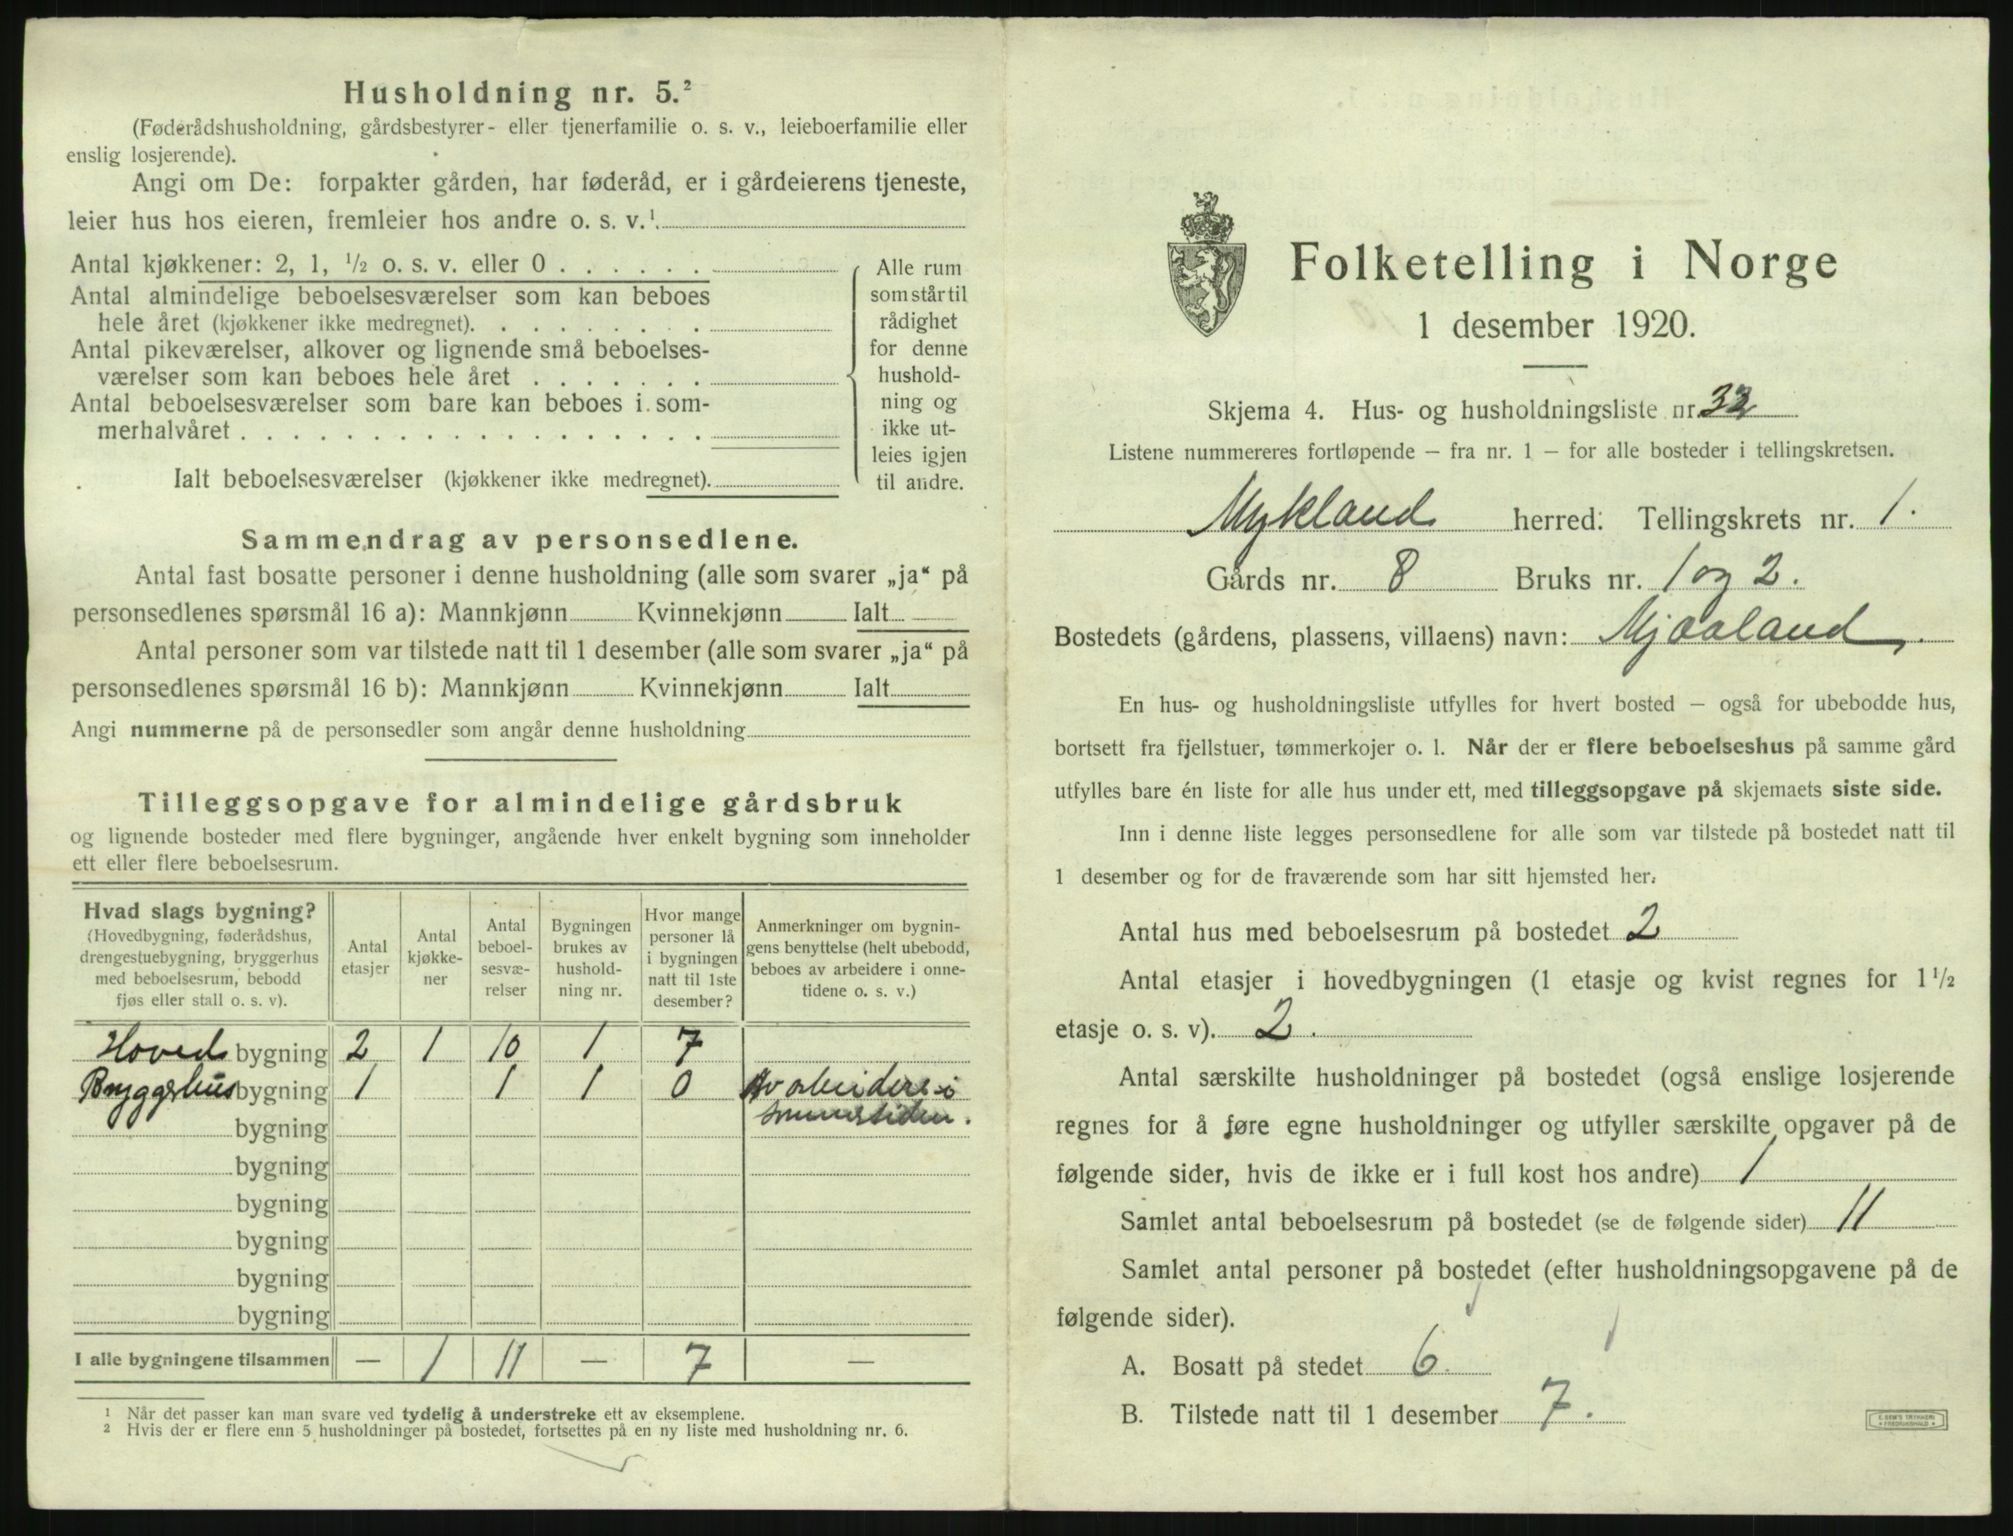 Husholdning nr. 5.²
(Føderådshusholdning, gårdsbestyrer- eller tjenerfamilie o. s. v., leieboerfamilie eller
enslig losjerende).
Angi om De: forpakter gården, har føderåd, er i gårdeierens tjeneste,
leier hus hos eieren, fremleier hos andre o. s. v.¹
Antal kjøkkener: 2, 1, ½ o. s. v. eller 0 . . . . . .
Antal almindelige beboelsesværelser som kan beboes
hele året (kjøkkener ikke medregnet). . . . . . . .
Antal pikeværelser, alkover og lignende små beboelses-
værelser som kan beboes hele året . . . . . . .
Antal beboelsesværelser som bare kan beboes i som-
merhalvåret . . . . . . . . . . . . . . . . . .
Ialt beboelsesværelser (kjøkkener ikke medregnet).
Alle rum
som står til
rådighet
for denne
hushold-
ning og
ikke ut-
leies igjen
til andre.
Sammendrag av personsedlene.
Antal fast bosatte personer i denne husholdning (alle som svarer „ja“ på
personsedlenes spørsmål 16 a): Mannkjønn Kvinnekjønn Ialt
Antal personer som var tilstede natt til 1 desember (alle som svarer „ja“ på
personsedlenes spørsmål 16 b): Mannkjønn Kvinnekjønn Ialt
Angi nummerne på de personsedler som angår denne husholdning
Tilleggsopgave for almindelige gårdsbruk
og lignende bosteder med flere bygninger, angående hver enkelt bygning som inneholder
ett eller flere beboelsesrum.
Hvad slags bygning?
(Hovedbygning, føderådshus,
drengestuebygning, bryggerhus
med beboelsesrum, bebodd
fjøs eller stall o. s. v).
Antal
etasjer
Antal
kjøkke-
ner
Antal
beboel-
sesvæ-
relser
Bygningen
brukes av
hushold-
ning nr.
Hvor mange
personer lå
i bygningen
natt til 1ste
desember?
Anmerkninger om bygnin-
gens benyttelse (helt ubebodd,
beboes av arbeidere i onne-
tidene o. s. v.)
Hoved bygning 2 1 10 1 7
Bryggerhus bygning 1 1 1 0 Av arbeidere i
bygning sommertiden.
bygning
bygning
bygning
bygning
bygning
I alle bygningene tilsammen — 1 11 — 7 —
¹ Når det passer kan man svare ved tydelig å understreke ett av eksemplene.
² Hvis der er flere enn 5 husholdninger på bostedet, fortsettes på en ny liste med husholdning nr. 6.
Folketelling i Norge
1 desember 1920.
Skjema 4. Hus- og husholdningsliste nr. 32
Listene nummereres fortløpende — fra nr. 1 — for alle bosteder i tellingskretsen.
Mykland herred. Tellingskrets nr. 1.
Gårds nr. 8 Bruks nr. 1 og 2.
Bostedets (gårdens, plassens, villaens) navn: Mjaaland.
En hus- og husholdningsliste utfylles for hvert bosted — også for ubebodde hus,
bortsett fra fjellstuer, tømmerkojer o. l. Når der er flere beboelseshus på samme gård
utfylles bare én liste for alle hus under ett, med tilleggsopgave på skjemaets siste side.
Inn i denne liste legges personsedlene for alle som var tilstede på bostedet natt til
1 desember og for de fraværende som har sitt hjemsted her.
Antal hus med beboelsesrum på bostedet 2
Antal etasjer i hovedbygningen (1 etasje og kvist regnes for 1½
etasje o. s. v). 2.
Antal særskilte husholdninger på bostedet (også enslige losjerende
regnes for å føre egne husholdninger og utfyller særskilte opgaver på de
følgende sider, hvis de ikke er i full kost hos andre) 1
Samlet antal beboelsesrum på bostedet (se de følgende sider) 11
Samlet antal personer på bostedet (efter husholdningsopgavene på de
følgende sider).
A. Bosatt på stedet 6.
B. Tilstede natt til 1 desember 7.
E. SEM'S TRYKKERI
FREDRIKSHALD